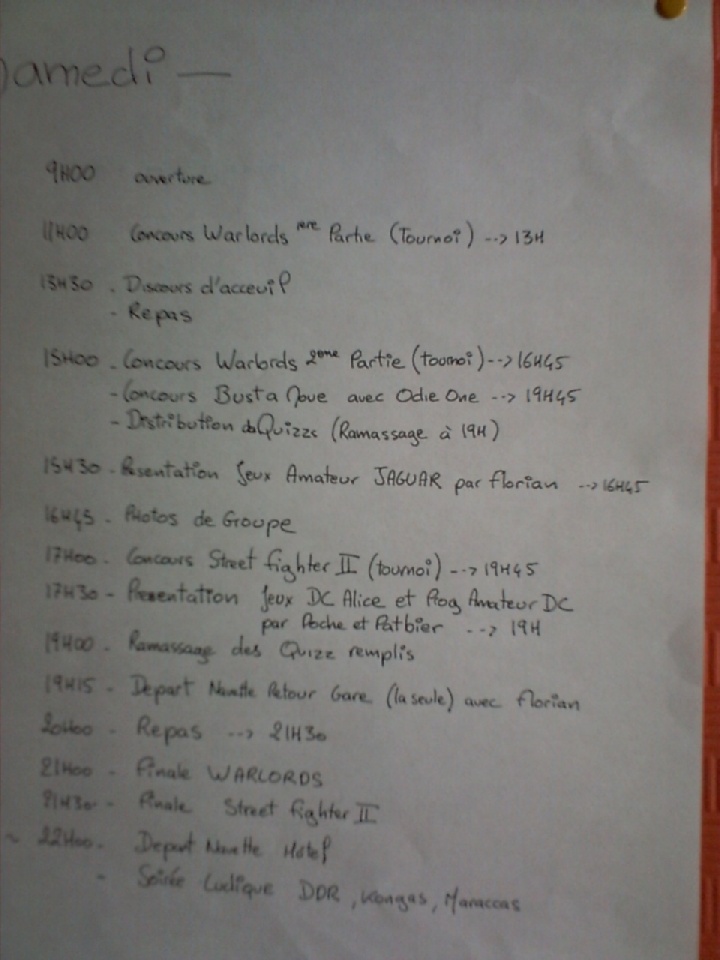 Samedi —
9H00 ouverture
11H00 Concours Warlords 1ere Partie (Tournoi) --> 13H
13H30 . Discours d'acceuil
- Repas
15H00 . Concours Warlords 2eme Partie (tournoi) --> 16H45
- Concours Bust a Move avec Odie One --> 19H45
- Distribution des Quizzs (Ramassage à 19H)
15H30 - Presentation Jeux Amateur JAGUAR par florian --> 16H45
16H45 . Photos de Groupe
17H00 . Concours Street fighter II (tournoi) --> 19H45
17H30 - Presentation Jeux DC Alice et Prog Amateur DC
par Poche et Patbier --> 19H
19H00 . Ramassage des Quizz remplis
19H15 . Depart Navette Retour Gare (la seule) avec florian
20H00 - Repas --> 21H30
21H00 - finale WARLORDS
21H30 - finale Street fighter II
~ 22H00. Depart Navette Hotel
- Soirée Ludique DDR, Kongas, Maraccas